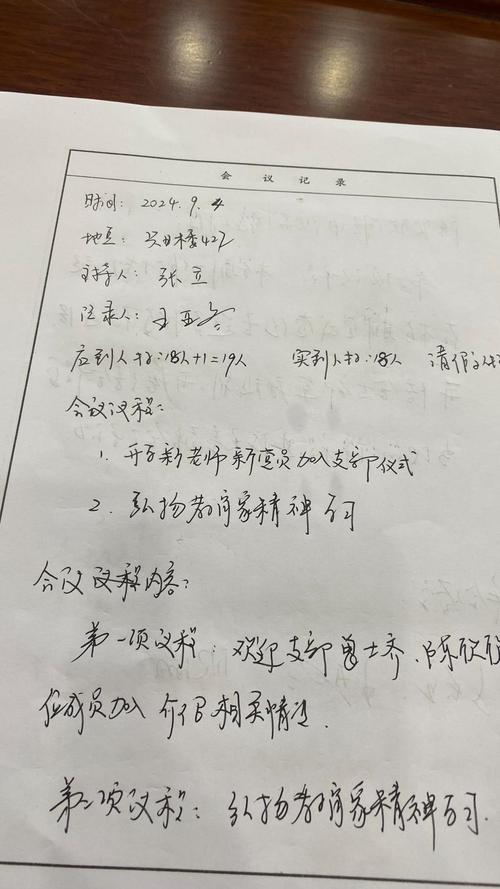 会议记录
时间：2024.9.4
地点：兴田楼427
主持人：张立
记录人：王亚
应到人数：18人+1=19人 实到人数：18人 请假人
会议议程：
1. 开展新老师新党员加入支部仪式
2. 弘扬教育家精神学习
会议议程内容：
第一项议程：欢迎支部 士乔、陈欣
位成员加入 介绍相关情况.
第二项议程：弘扬教育家精神学习.